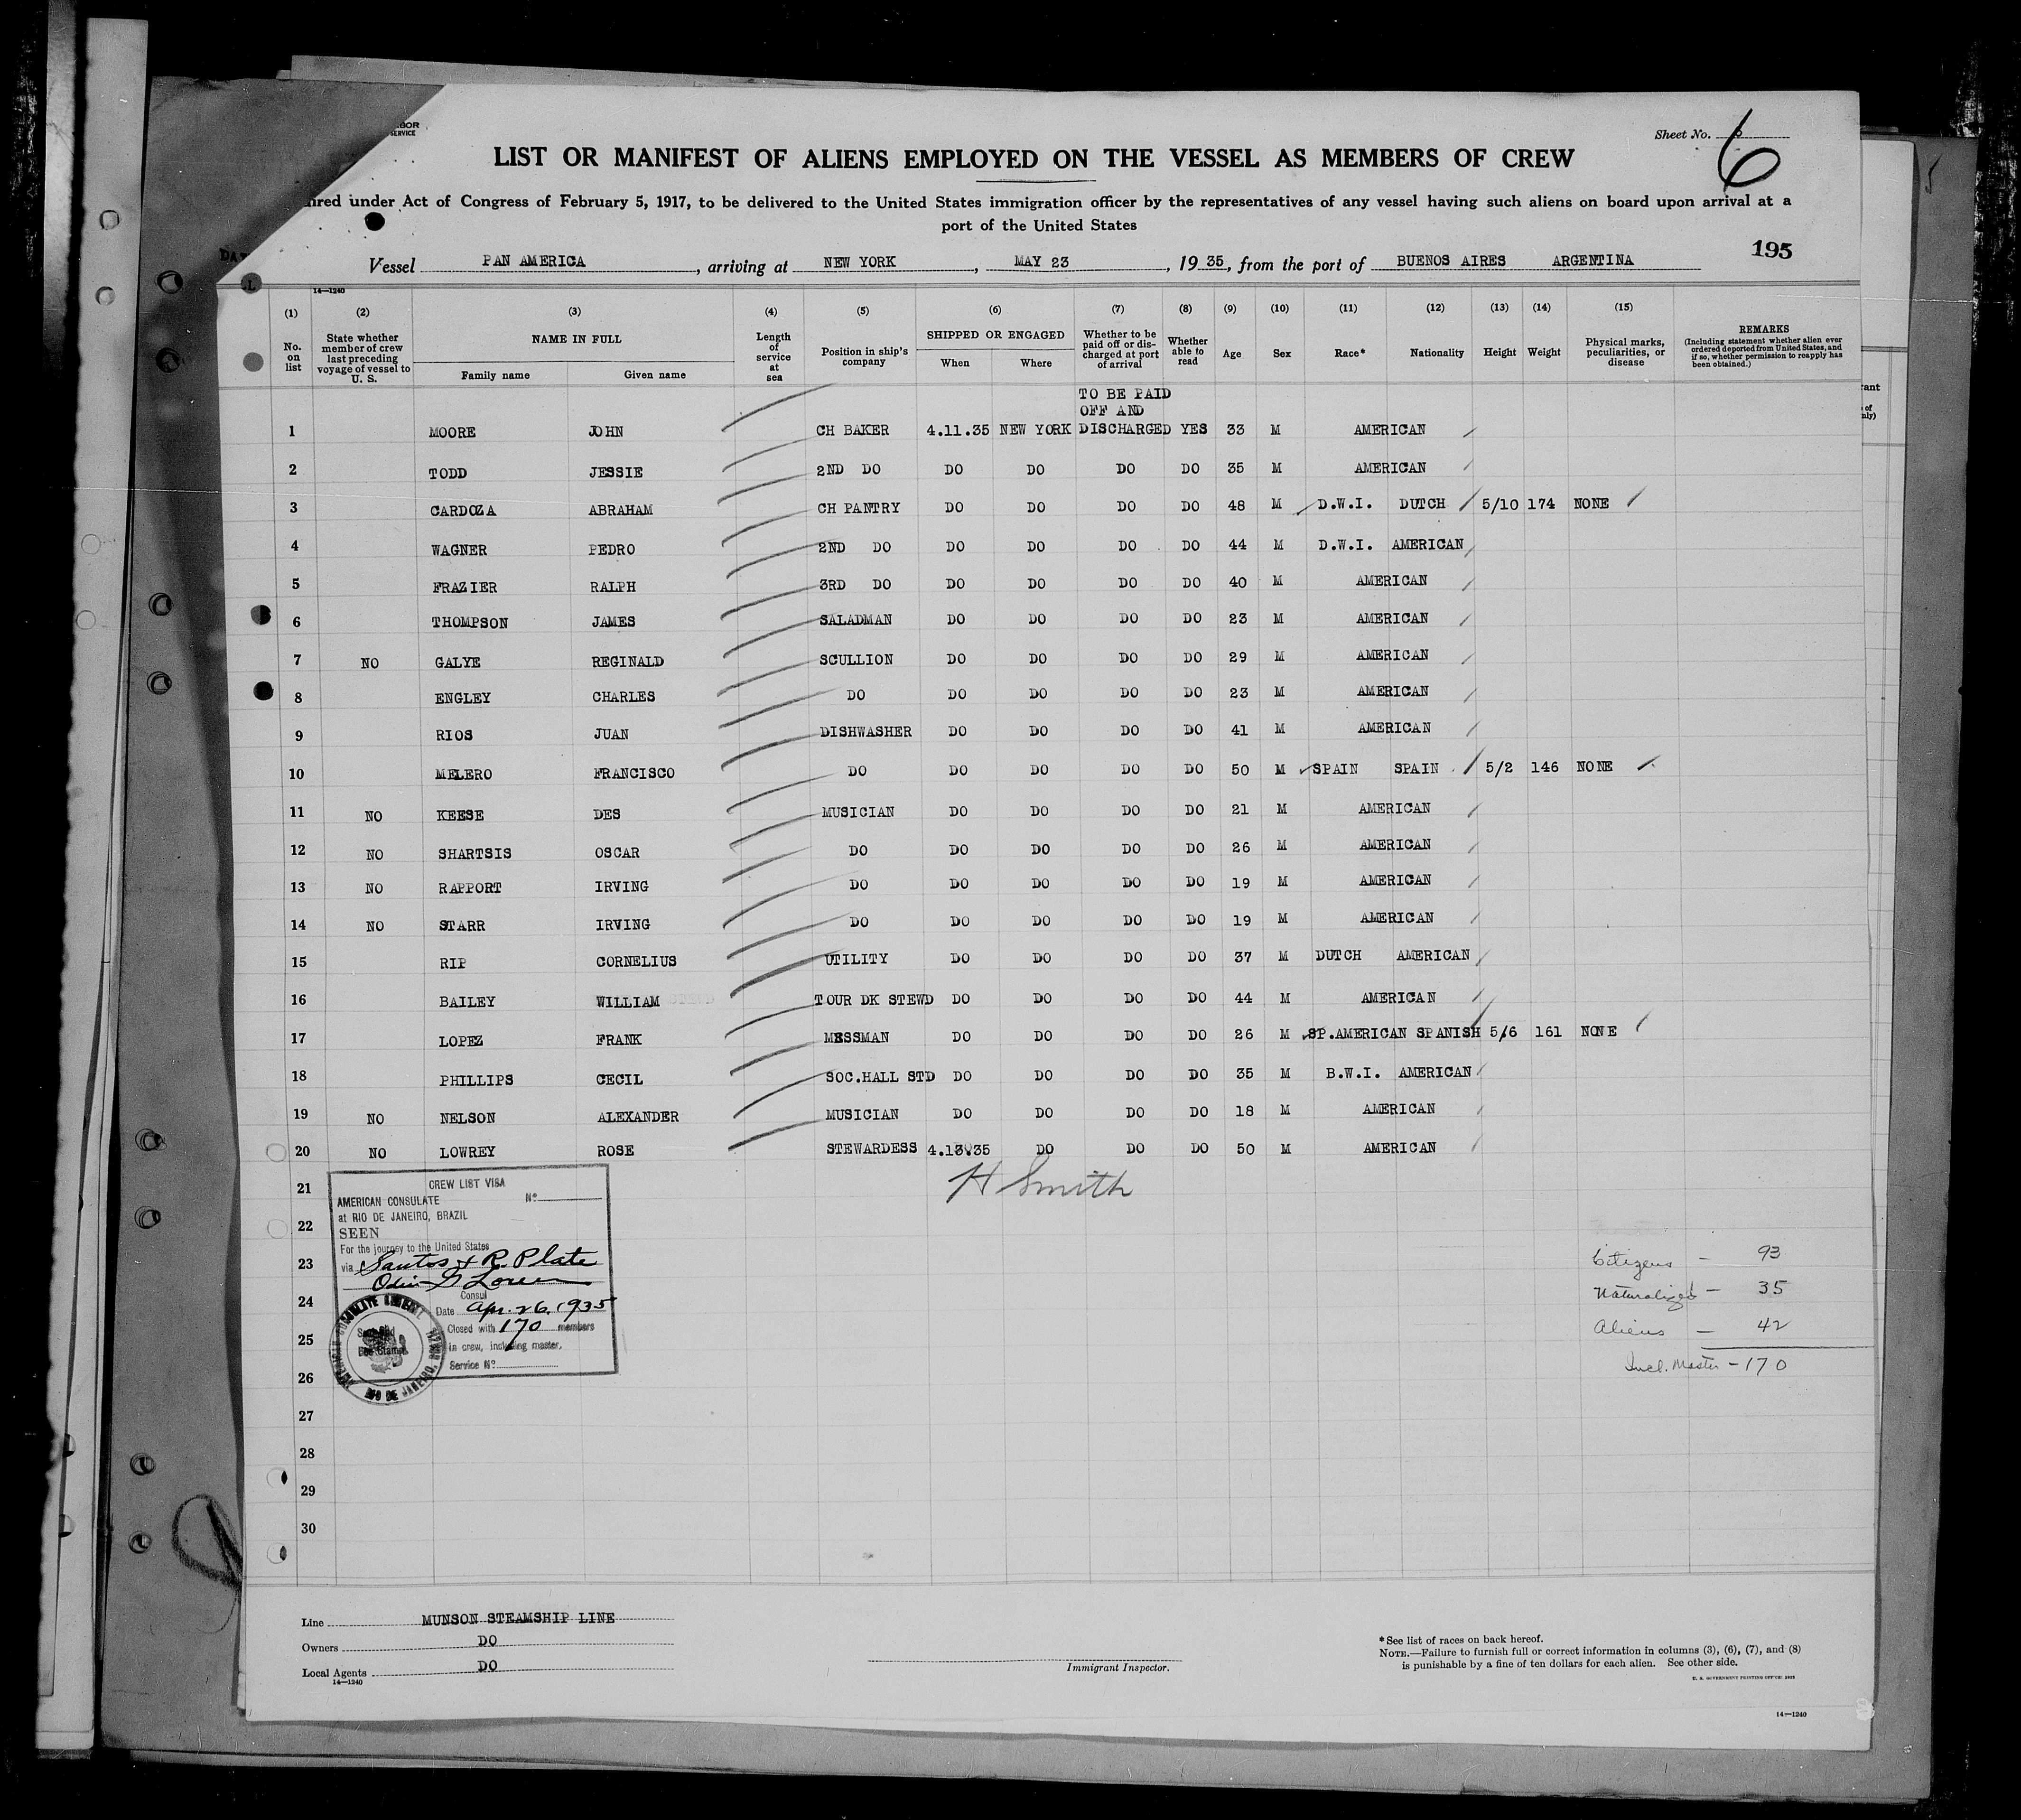 BOR
SERVICE
Sheet No. 6
LIST OR MANIFEST OF ALIENS EMPLOYED ON THE VESSEL AS MEMBERS OF CREW
ired under Act of Congress of February 5, 1917, to be delivered to the United States immigration officer by the representatives of any vessel having such aliens on board upon arrival at a
port of the United States
195
Vessel PAN AMERICA, arriving at NEW YORK, MAY 23, 1935, from the port of BUENOS AIRES ARGENTINA
14—1240
(1) (2) (3) (4) (5) (6) (7) (8) (9) (10) (11) (12) (13) (14) (15)
No. on list State whether member of crew last preceding voyage of vessel to U. S. NAME IN FULL Family name Given name Length of service at sea Position in ship's company SHIPPED OR ENGAGED When Where Whether to be paid off or discharged at port of arrival Whether able to read Age Sex Race* Nationality Height Weight Physical marks, peculiarities, or disease REMARKS (Including statement whether alien ever ordered deported from United States, and if so, whether permission to reapply has been obtained.)
TO BE PAID
OFF AND
1 MOORE JOHN CH BAKER 4.11.35 NEW YORK DISCHARGED YES 33 M AMERICAN
2 TODD JESSIE 2ND DO DO DO DO DO 35 M AMERICAN
3 CARDOZA ABRAHAM CH PANTRY DO DO DO DO 48 M D.W.I. DUTCH 5/10 174 NONE
4 WAGNER PEDRO 2ND DO DO DO DO DO 44 M D.W.I. AMERICAN
5 FRAZIER RALPH 3RD DO DO DO DO DO 40 M AMERICAN
6 THOMPSON JAMES SALADMAN DO DO DO DO 23 M AMERICAN
7 NO GALYE REGINALD SCULLION DO DO DO DO 29 M AMERICAN
8 ENGLEY CHARLES DO DO DO DO DO 23 M AMERICAN
9 RIOS JUAN DISHWASHER DO DO DO DO 41 M AMERICAN
10 MELERO FRANCISCO DO DO DO DO DO 50 M SPAIN SPAIN 5/2 146 NONE
11 NO KEESE DES MUSICIAN DO DO DO DO 21 M AMERICAN
12 NO SHARTSIS OSCAR DO DO DO DO DO 26 M AMERICAN
13 NO RAPPORT IRVING DO DO DO DO DO 19 M AMERICAN
14 NO STARR IRVING DO DO DO DO DO 19 M AMERICAN
15 RIP CORNELIUS UTILITY DO DO DO DO 37 M DUTCH AMERICAN
16 BAILEY WILLIAM TOUR DK STEWD DO DO DO DO 44 M AMERICAN
17 LOPEZ FRANK MESSMAN DO DO DO DO 26 M SP.AMERICAN SPANISH 5/6 161 NONE
18 PHILLIPS CECIL SOC.HALL STD DO DO DO DO 35 M B.W.I. AMERICAN
19 NO NELSON ALEXANDER MUSICIAN DO DO DO DO 18 M AMERICAN
20 NO LOWREY ROSE STEWARDESS 4.13.35 DO DO DO 50 M AMERICAN
H Smith
21
22
23
24
25
26
27
28
29
30
CREW LIST VISA
AMERICAN CONSULATE No.
at RIO DE JANEIRO, BRAZIL
SEEN
For the journey to the United States
via Santos & R. Plate
Consul
Date Apr. 26, 1935
Closed with 170 members
in crew, including master.
Service No.
RIO DE JANEIRO
Citizens — 93
Naturalized — 35
Aliens — 42
Incl. Master — 170
Line MUNSON STEAMSHIP LINE
Owners DO
Local Agents DO
14—1240
Immigrant Inspector.
*See list of races on back hereof.
NOTE.—Failure to furnish full or correct information in columns (3), (6), (7), and (8)
is punishable by a fine of ten dollars for each alien. See other side.
14—1240